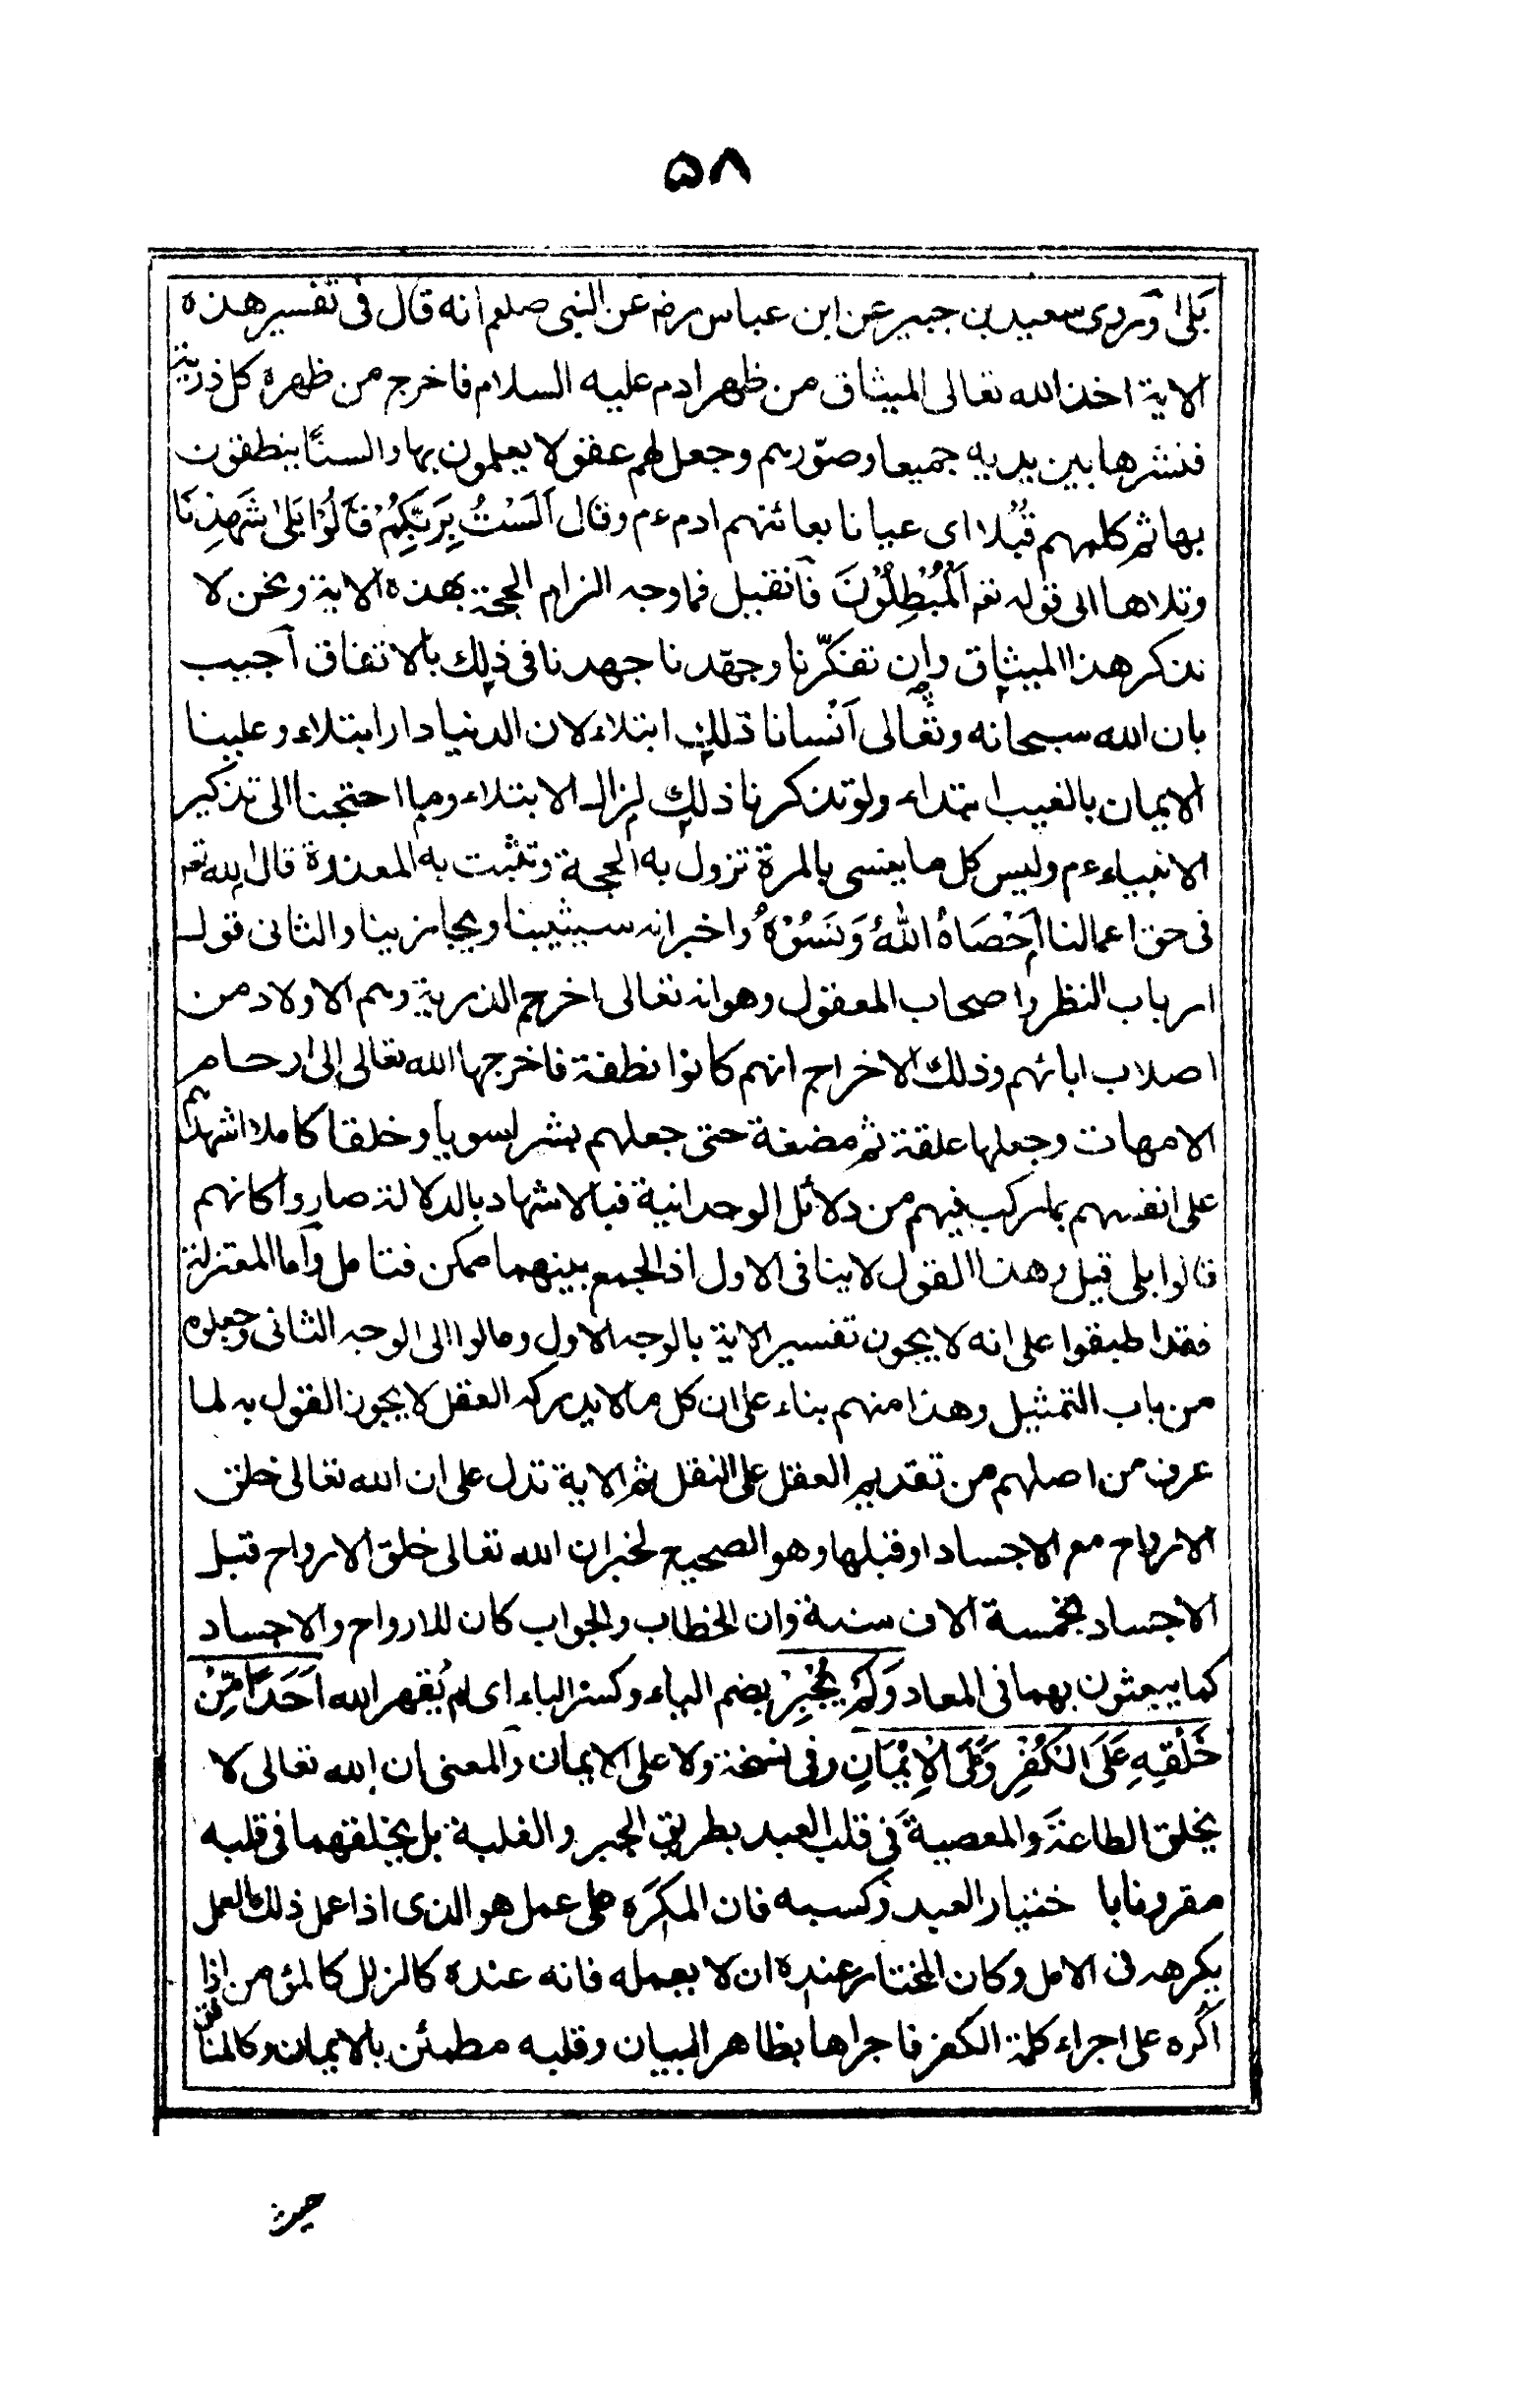 ۵۸
بَلىٰ وروى سعيد بن جبير عن ابن عباس رض عن النبى صلعم انه قال فى تفسير هذه
الاية اخذ الله تعالى الميثاق من ظهر ادم عليه السلام فاخرج من ظهره كل ذرية
فنثرها بين يديه جميعا وصوّرهم وجعل لهم عقولا يعلمون بها والسنًا ينطقون
بها ثم كلمهم قبُلا اى عيانا بعائنهم ادم ءم وقال اَلَسْتُ بِرَبِّكُمْ قَالُوْا بَلىٰ شَهِدْنَا
وتلاها الى قوله تعم اَلْمُبْطِلُوْنَ فآن قيل فما وجه الزام الحجة بهذه الاية ونحن لا
نذكر هذا الميثاق وان تفكّرنا وجهدنا جهدنا فى ذلك بالاتفاق آجيب
بان الله سبحانه وتعالى اَنْسانا ذلك ابتلاء لان الدنيا دار ابتلاء وعلينا
الايمان بالغيب ابتداء ولو تذكرنا ذلك لزال الابتلاء وما احتجنا الى تذكير
الانبياء ءم وليس كل ما ينسى بالمرة تزول به الحجة وتثبت به المعذرة قال الله تعم
فى حق اعمالنا اَحْصَاهُ اللّٰهُ وَنَسُوْهُ واخبر انه سيثيبنا ويجازينا والثانى قول
ارباب النظر واصحاب المعقول وهو انه تعالى اخرج الذرية وهم الاولاد من
اصلاب ابائهم وذلك الاخراج انهم كانوا نطفة فاخرجها الله تعالى الى ارحام
الامهات وجعلها علقة ثم مضغة حتى جعلهم بشرا سويا وخلقا كاملا اشهدهم
على انفسهم بما ركب فيهم من دلائل الوحدانية فبالاشهاد بالدلالة صاروا كانهم
قالوا بلى قيل وهذا القول لا ينافى الاول اذ الجمع بينهما ممكن فتامل وآما المعتزلة
فقد اطبقوا على انه لا يجوز تفسير الاية بالوجه الاول ومالوا الى الوجه الثانى وجعلوه
من باب التمثيل وهذا منهم بناء على ان كل ما لا يدركه العقل لا يجوز القول به لما
عرف من اصلهم من تقديم العقل على النقل ثم الاية تدل على ان الله تعالى خلق
الارواح مع الاجساد او قبلها وهو الصحيح لخبر ان الله تعالى خلق الارواح قبل
الاجساد بخمسة الاف سنة وان الخطاب والجواب كان للارواح والاجساد
كما يبعثون بهما فى المعاد وَلَمْ يُجْبِرْ بضم الياء وكسر الباء اى لم يُقهر الله اَحَدًا مِّنْ
خَلْقِهِ عَلَى الْكُفْرِ وَعَلَى الْاِيْمَانِ وفى نسخة ولا على الايمان والمعنى ان الله تعالى لا
يخلق الطاعة والمعصية فى قلب العبد بطريق الجبر والغلبة بل يخلقهما فى قلبه
مقرونا با ختيار العبد وكسبه فان المكرَه على عمل هو الذى اذا عمل ذلك العمل
يكرهه فى الامل وكان المختار عنده ان لا يعمله فانه عنده كالزلل كالمؤمن اذا
اكره على اجراء كلمة الكفر فاجراها بظاهر البيان وقلبه مطمئن بالايمان وكالمنافق
حيث